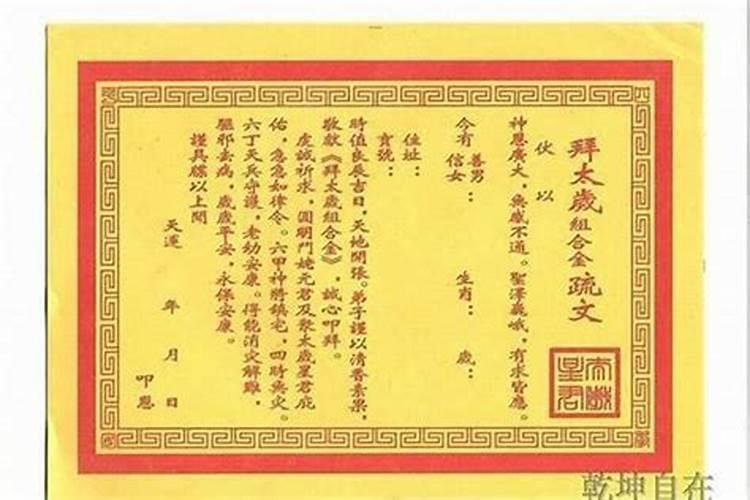 拜太歲組合金疏文
伏以
神恩廣大，無感不通。聖澤巍峨，有求皆應。
今有善男信女：　生肖：　歲：
住址：
寶號：
時值良辰吉日，天地開張。弟子謹以清香素果，
敬獻《拜太歲組合金》，誠心叩拜。
虔誠祈求，圓明門姥元君及眾太歲星君庇
佑，急急如律令。六甲神將鎮宅，四時無災。
六丁天兵守護，老幼安康。得能消災解難，
驅邪去病，歲歲平安，永保安康。
謹具牒以上聞
天運　年　月　日　叩恩
太歲星君
乾坤自在